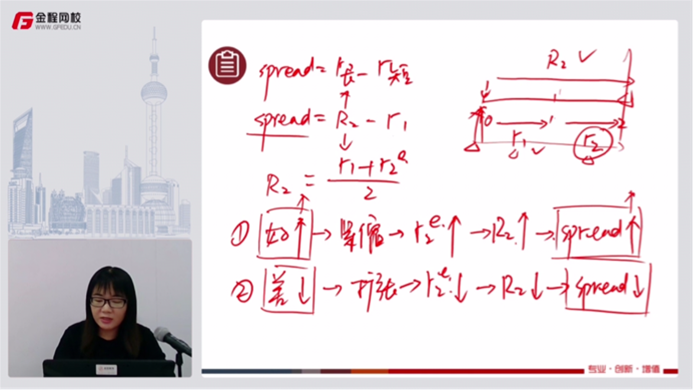 金程网校
WWW.GFEDU.CN
spread = r长 - r短
spread = R₂ - r₁
R₂ = (r₁+r₂ᵉ)/2
① 好↑ → 紧缩 → r₂ᵉ↑ → R₂↑ → spread↑
② 差↓ → 扩张 → r₂ᵉ↓ → R₂↓ → spread↓
R₂ ✓
1
0 → 1 → 2
r₁ ✓ r₂
专业·创新·增值